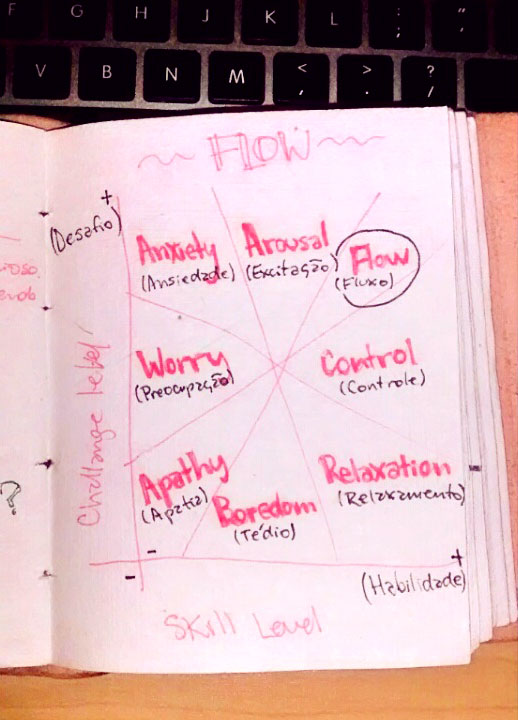 F G H J K L : ; " ,
V B N M < , > . ? /
FLOW
+
(Desafio)
Anxiety
(Ansiedade)
Arousal
(Excitação)
Flow
(Fluxo)
Challange Level
Worry
(Preocupação)
Control
(Controle)
?
Apathy
(Apatia)
Boredom
(Tédio)
Relaxation
(Relaxamento)
-
-
+
(Habilidade)
Skill Level